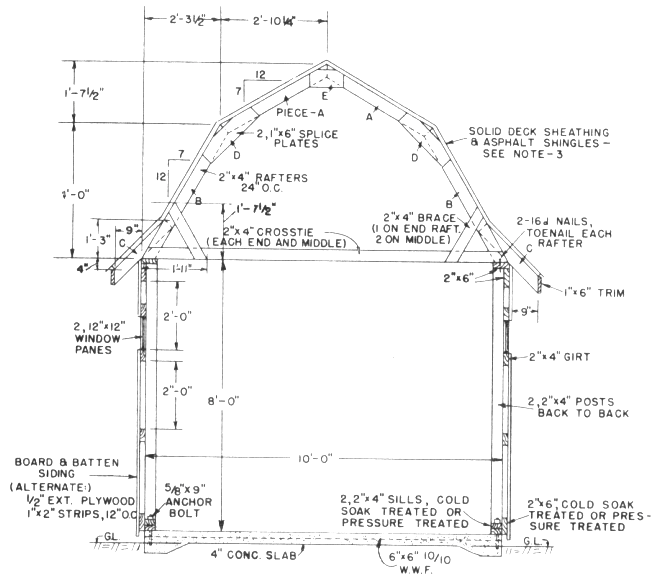 2'-3½" 2'-10¼"
12
7
1'-7½"
E
PIECE-A
A
2,1"x6" SPLICE
PLATES
SOLID DECK SHEATHING
& ASPHALT SHINGLES-
SEE NOTE-3
7
12
D
D
2"x4" RAFTERS
24" O.C.
B
B
'-0"
1'-7½"
9"
1'-3"
C
4"
2"x4" CROSSTIE
(EACH END AND MIDDLE)
2"x4" BRACE
(1 ON END RAFT.
2 ON MIDDLE)
2-16d NAILS,
TOENAIL EACH
RAFTER
C
1'-11"
2"x6"
1"x6" TRIM
9"
2'-0"
2,12"x12"
WINDOW
PANES
2"x4" GIRT
2"-0"
8'-0"
2,2"x4" POSTS
BACK TO BACK
10'-0"
BOARD & BATTEN
SIDING
(ALTERNATE:)
½" EXT. PLYWOOD
1"x2" STRIPS, 12" O.C.
5/8"x9"
ANCHOR
BOLT
2,2"x4" SILLS, COLD
SOAK TREATED OR
PRESSURE TREATED
2"x6", COLD SOAK
TREATED OR PRES-
SURE TREATED
GL
G.L.
4" CONC. SLAB
6"x6" 10/10
W.W.F.